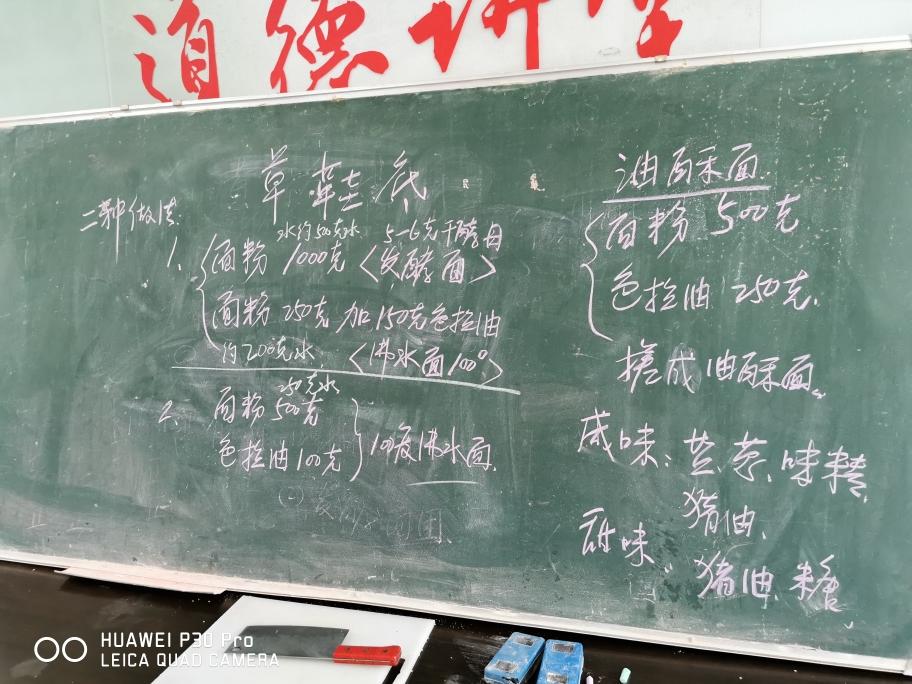 道德讲堂
草鞋底
二种做法
水约500克水 5-6克干酵母
1、面粉 1000克 <发酵面>
面粉 250克 加150克色拉油
约200克水 <沸水面100°>
250克水
2、面粉 500克
色拉油100克
100度沸水面
油酥面
面粉 500克
色拉油 250克
搓成油酥面。
咸味：葱、味精
猪油、
甜味、猪油、糖
HUAWEI P30 Pro
LEICA QUAD CAMERA